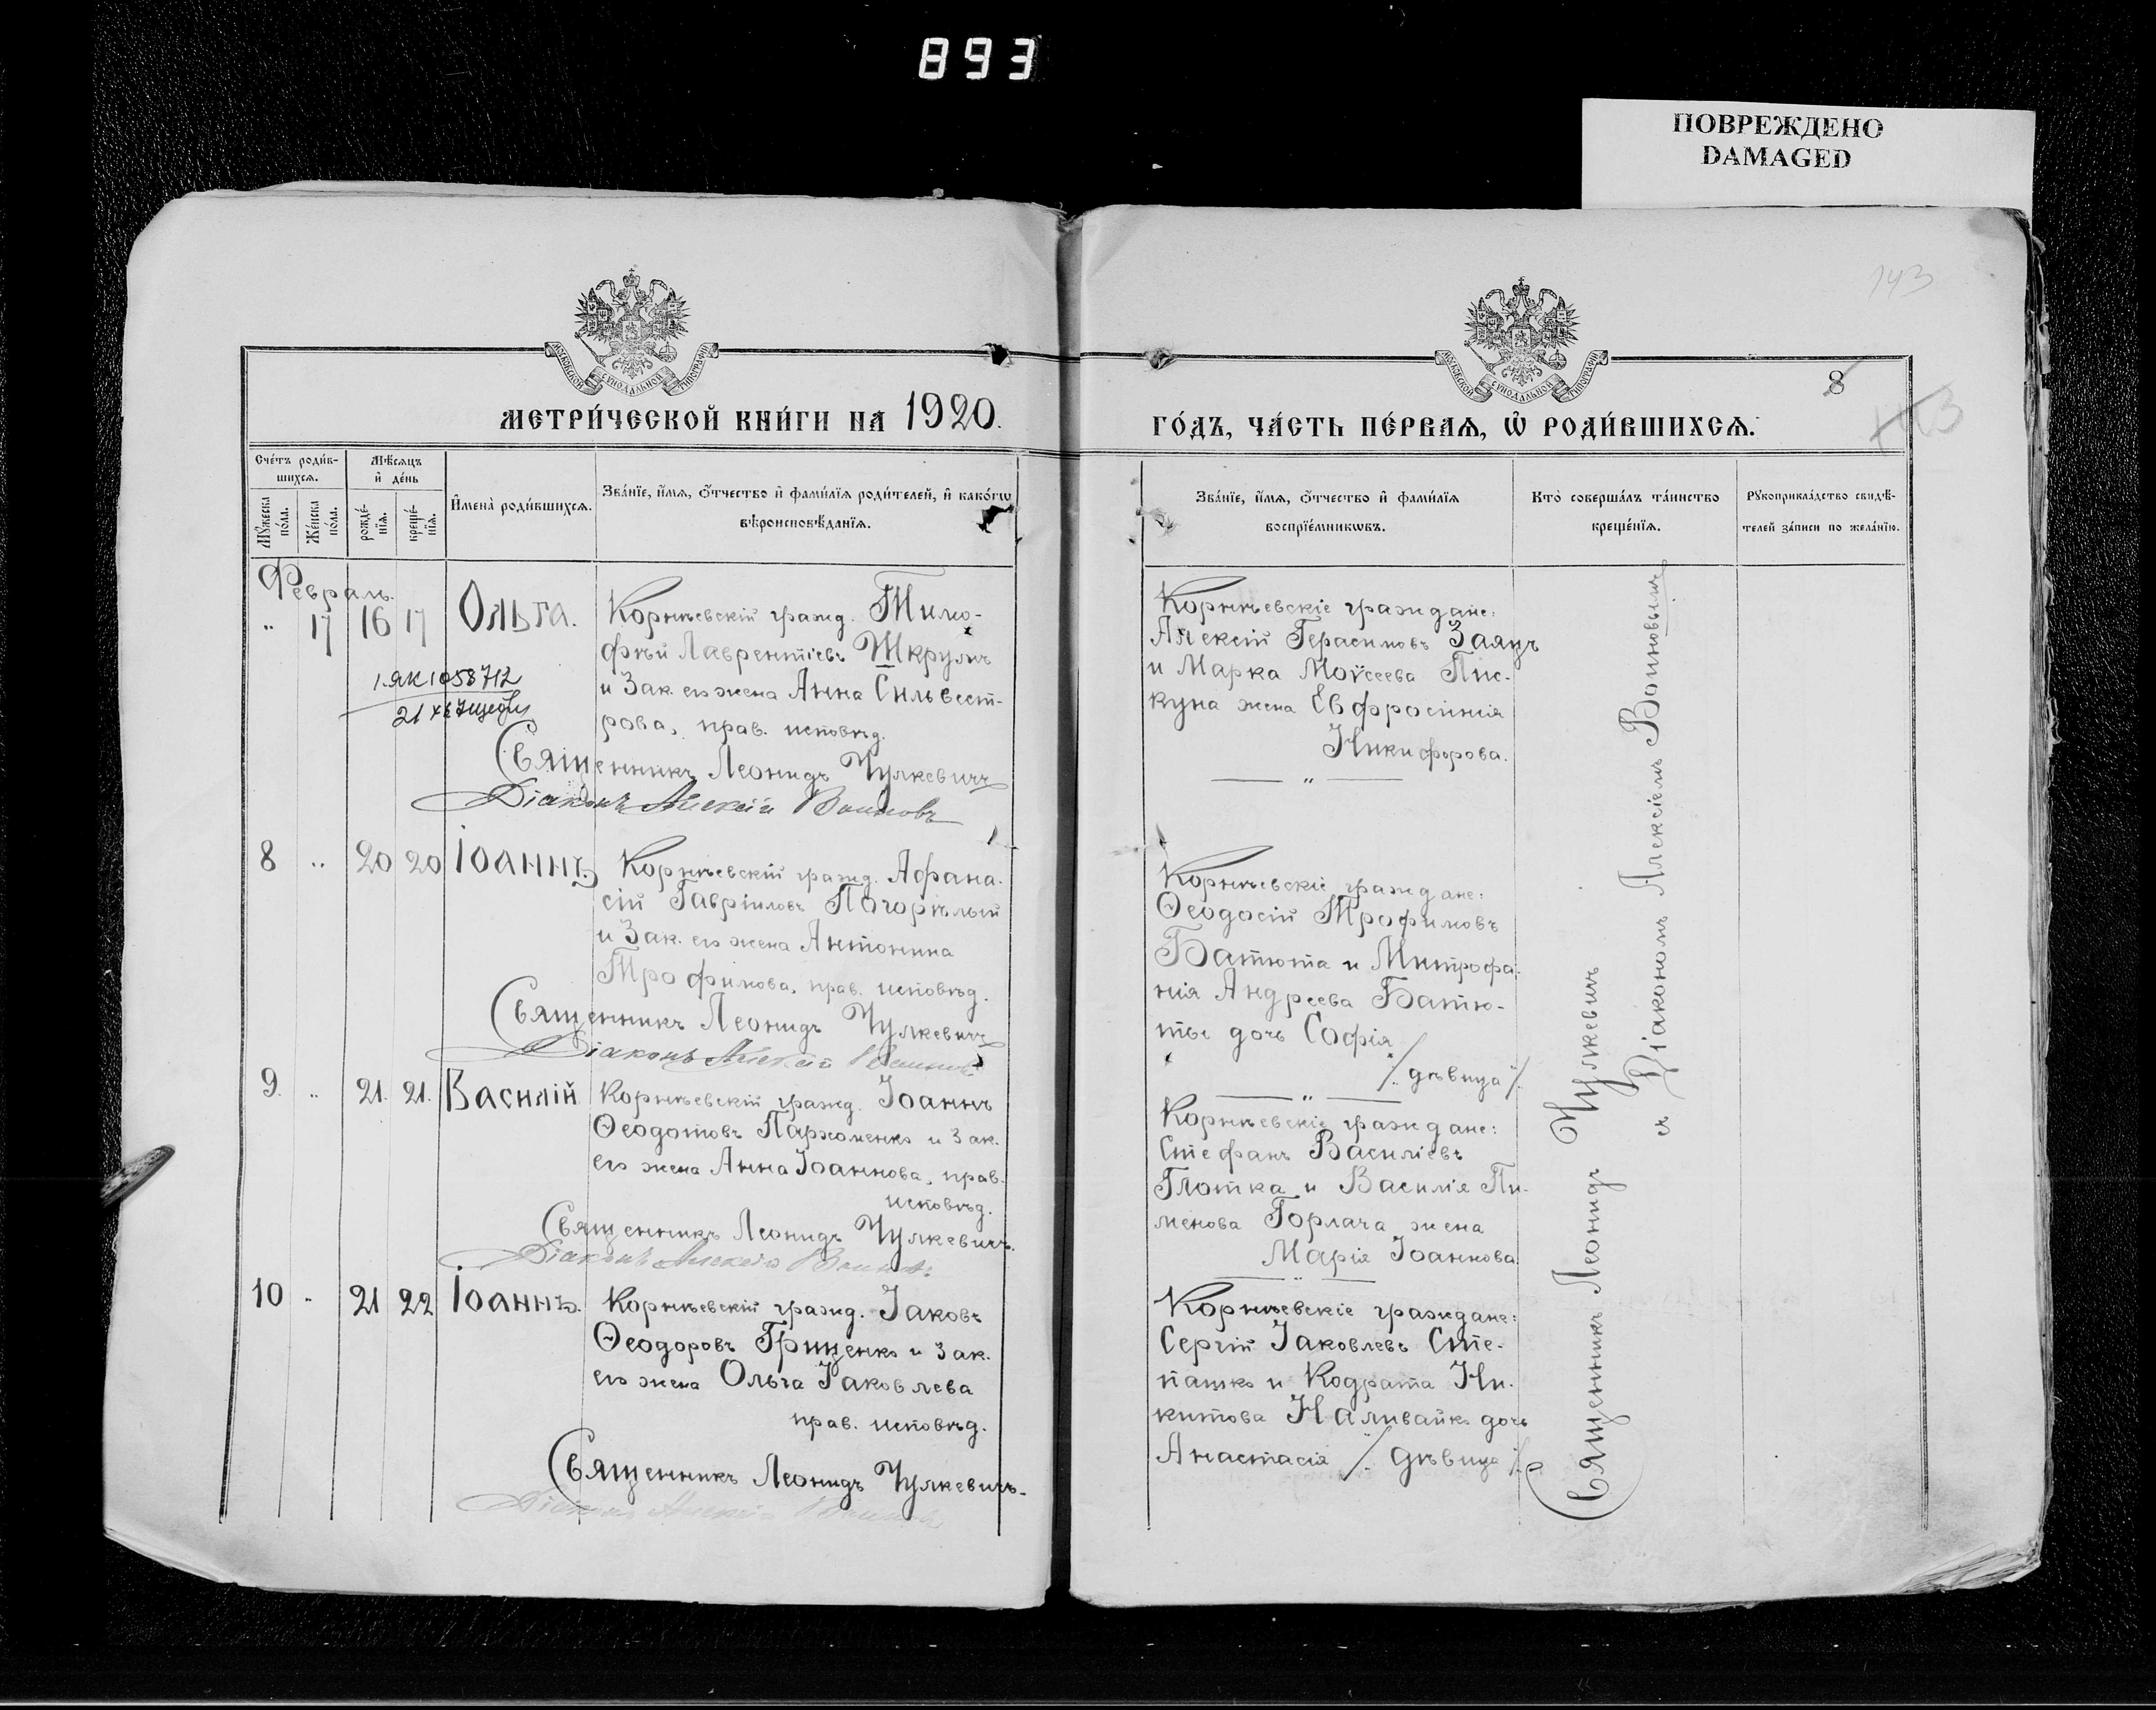 893
ПОВРЕЖДЕНО
DAMAGED
143
МОСКОВСКОЙ СУНОДАЛЬНОЙ ТИПОГРАФІИ
МОСКОВСКОЙ СУНОДАЛЬНОЙ ТИПОГРАФІИ
8
143
МЕТРИ́ЧЕСКОЙ КНИ́ГИ НА 1920.
ГО́ДЪ, ЧА́СТЬ ПЕ́РВАѦ, Ѡ҆ РОДИ́ВШИХСѦ.
Сче́тъ роди́в-
шихсѧ.
Мꙋ́жеска по́ла.
Же́нска по́ла.
Мѣ́сѧцъ
и҆ де́нь
рожде́-
нїѧ.
креще́-
нїѧ.
И҆мена̀ роди́вшихсѧ.
Зва́нїе, и҆́мѧ, ѻ҆́тчество и҆ фами́лїѧ роди́телей, и҆ како́гѡ
вѣроисповѣ́данїѧ.
Зва́нїе, и҆́мѧ, ѻ҆́тчество и҆ фами́лїѧ
воспрїе́мникѡвъ.
Кто̀ соверша́лъ та́инство
креще́нїѧ.
Рꙋкоприкла́дство свидѣ́-
телей за́писи по жела́нїю.
Февраль.
" 17 16 17 Ольга. Корнѣевскій гражд. Тимо-
фѣй Лаврентіевъ Шкрумъ
и Зак. его жена Анна Сильвест-
рова, прав. исповѣд.
1.ЯК 1058712
Священникъ Леонидъ Чулкевичъ
Діаконъ Алексій Воиновъ
Корнѣевскіе граждане:
Алексій Герасимовъ Заяцъ
и Марка Моѵсеева Пис-
куна жена Евфросинія
Никифорова.
8 " 20 20 Іоаннъ Корнѣевскій гражд. Афана-
сій Гавріиловъ Погорѣлый
и Зак. его жена Антонина
Трофимова, прав. исповѣд.
Священникъ Леонидъ Чулкевичъ
Діаконъ Алексій Воиновъ
Корнѣевскіе граждане:
Ѳеодосій Трофимовъ
Батюта и Митрофа-
нія Андреева Батю-
ты дочь Софія
/. дѣвица ./.
9. " 21. 21. Василій Корнѣевскій гражд. Іоаннъ
Ѳеодотовъ Пархоменко и Зак.
его жена Анна Іоаннова, прав.
исповѣд.
Священникъ Леонидъ Чулкевичъ.
Діаконъ Алексій Воиновъ
Корнѣевскіе граждане:
Стефанъ Василіевъ
Глотка и Василія Пи-
менова Горлача жена
Марія Іоаннова
10 " 21 22 Іоаннъ. Корнѣевскій гражд. Іаковъ
Ѳеодоровъ Грищенко и Зак.
его жена Ольга Іаковлева
прав. исповѣд.
Священникъ Леонидъ Чулкевичъ.
Діаконъ Алексій Воиновъ
Корнѣевскіе граждане:
Сергій Іаковлевъ Сте-
пашко и Кодрата Ни-
китова Наливайко дочь
Анастасія /. дѣвица ./.
Священникъ Леонидъ Чулкевичъ
съ Діакономъ Алексіемъ Воиновымъ